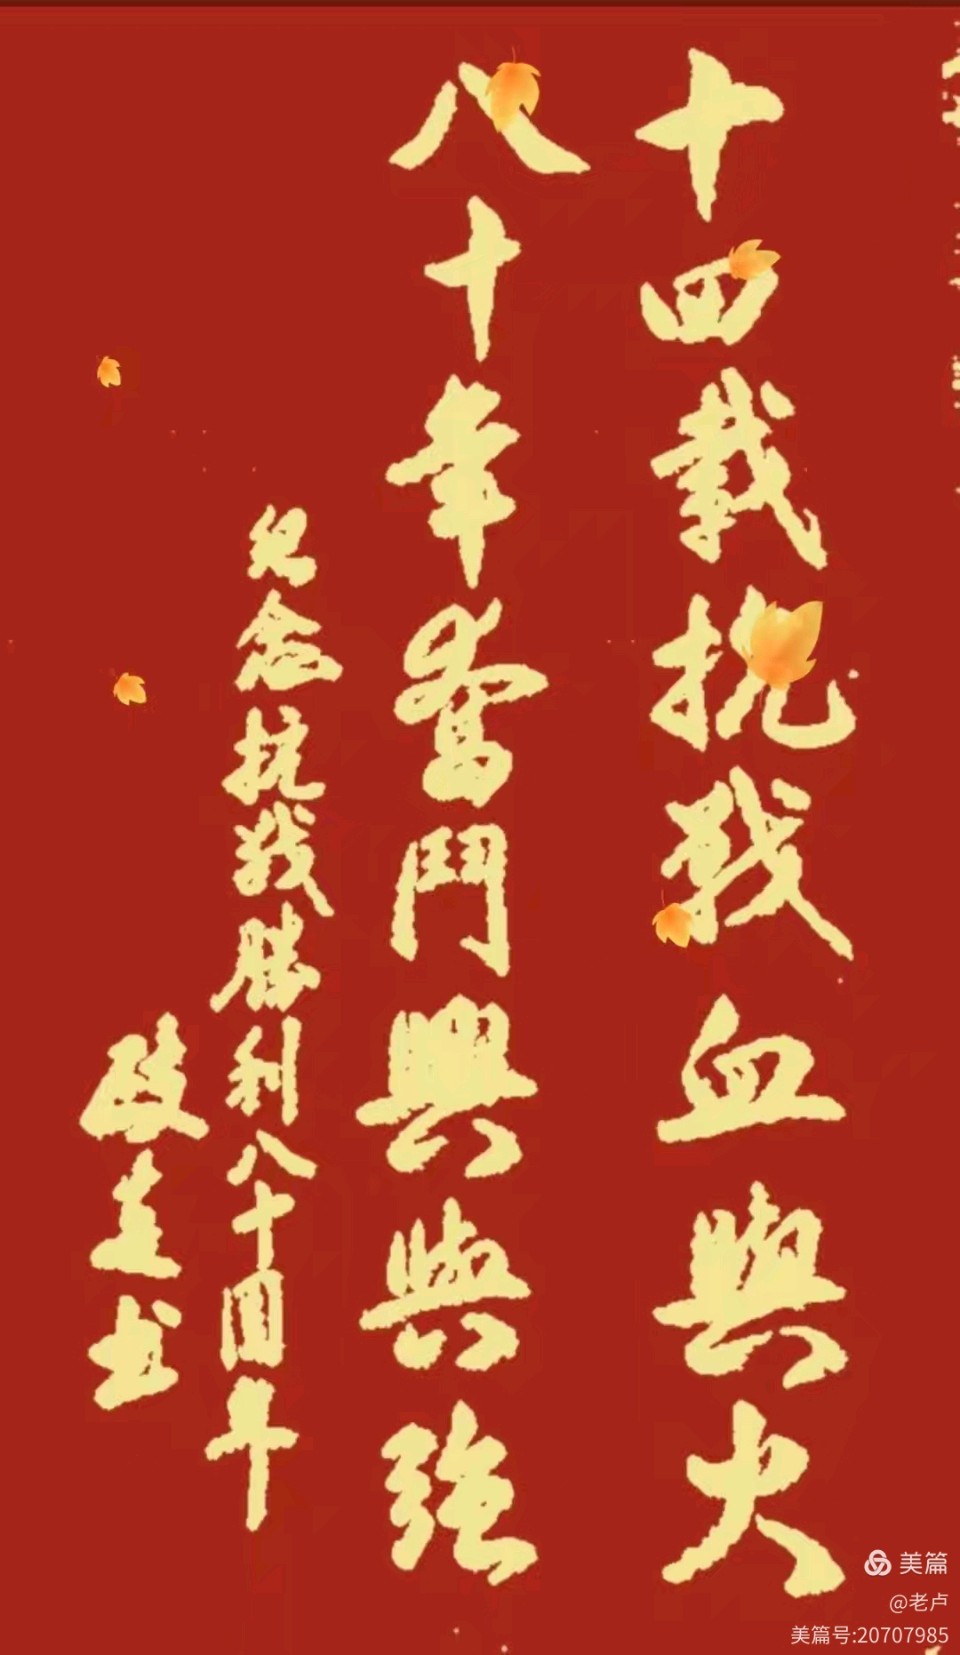 十四载抗战血與火
八十年奮鬥興與強
纪念抗战勝利八十周年
走书
美篇
@老卢
美篇号:20707985